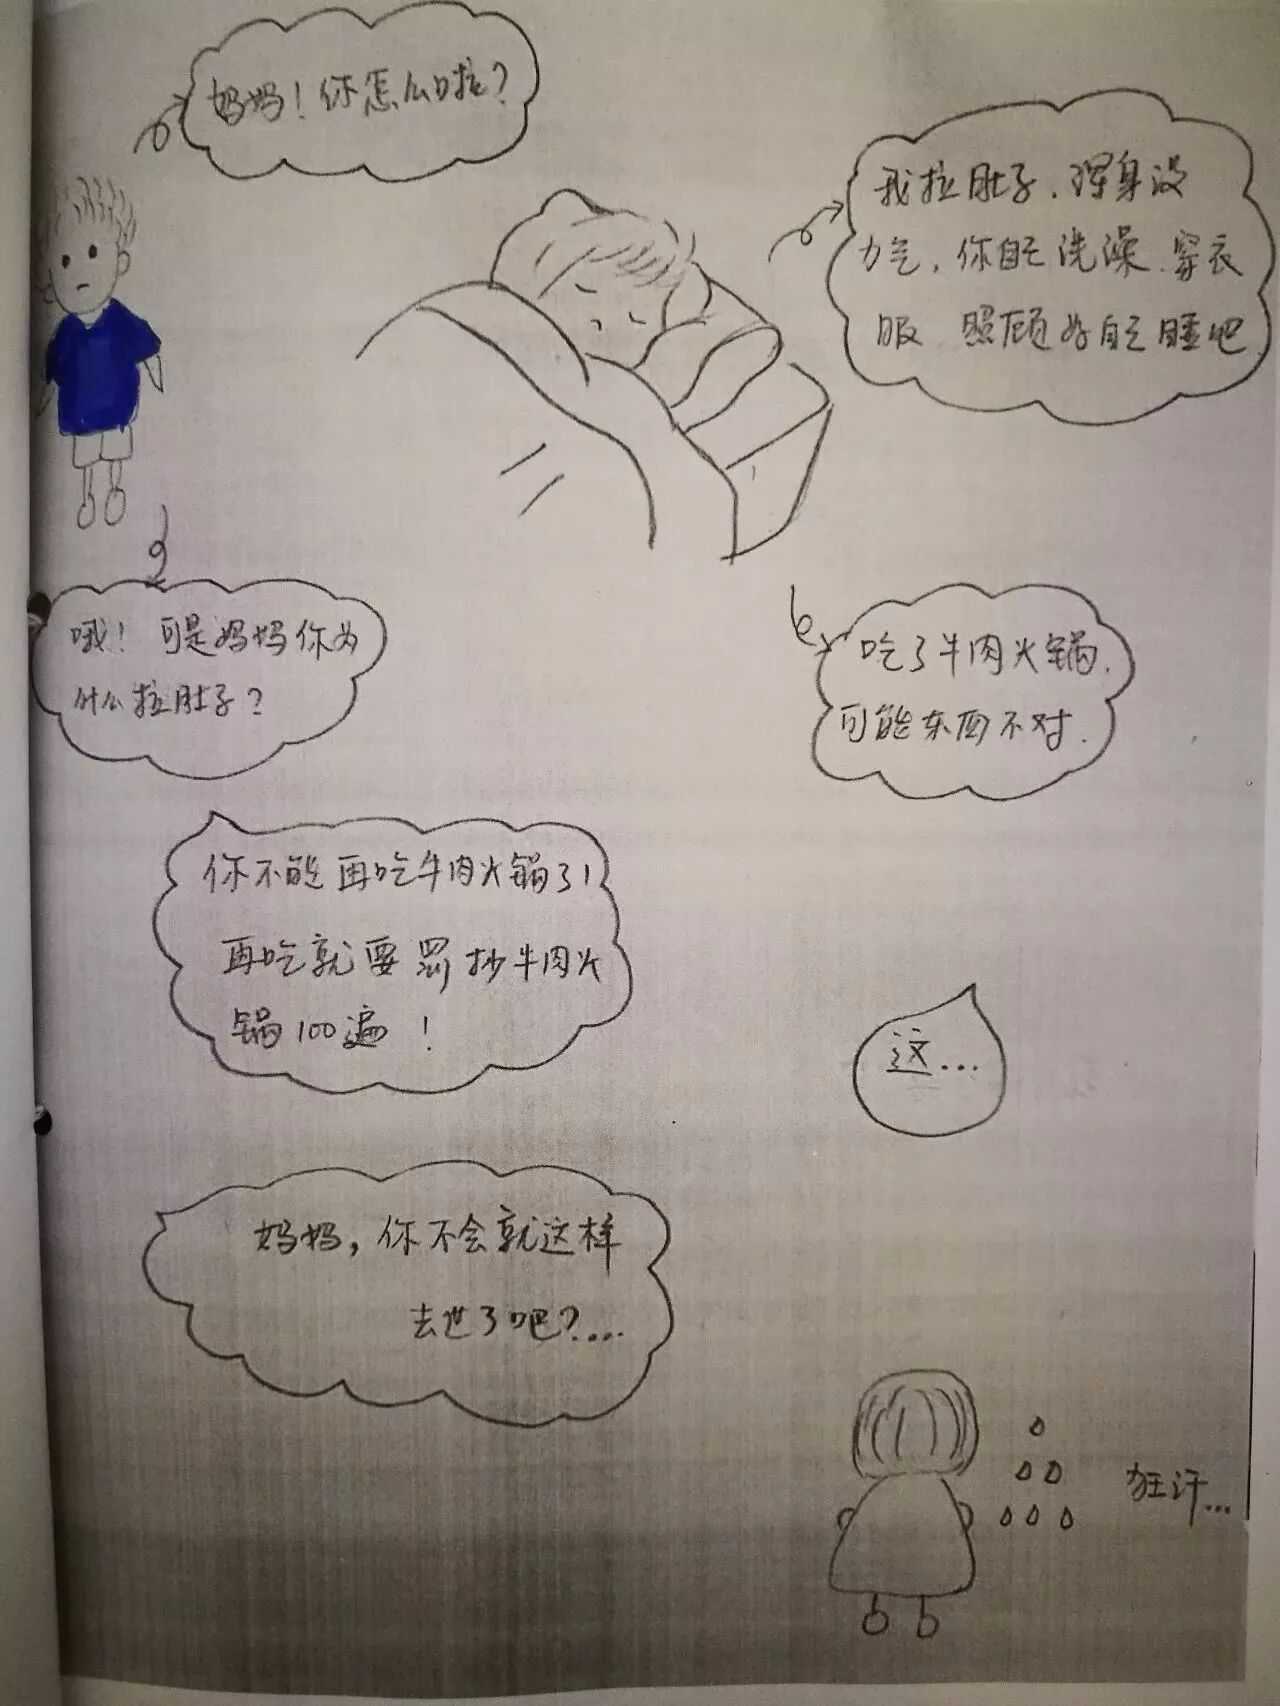 妈妈！你怎么啦？
我拉肚子，浑身没
力气，你自己洗澡、穿衣
服、照顾好自己睡吧
哦！可是妈妈你为
什么拉肚子？
吃了牛肉火锅，
可能东西不对.
你不能再吃牛肉火锅了！
再吃就要罚抄牛肉火
锅100遍！
这…
妈妈，你不会就这样
去世了吧？…
狂汗…